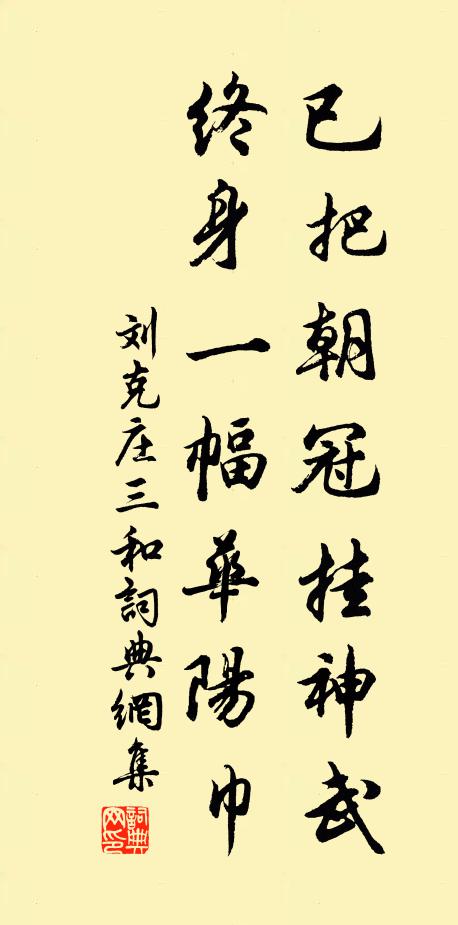 已把朝冠挂神武
终身一幅華陽巾
刘克庄三和詞典網集
詞典网印